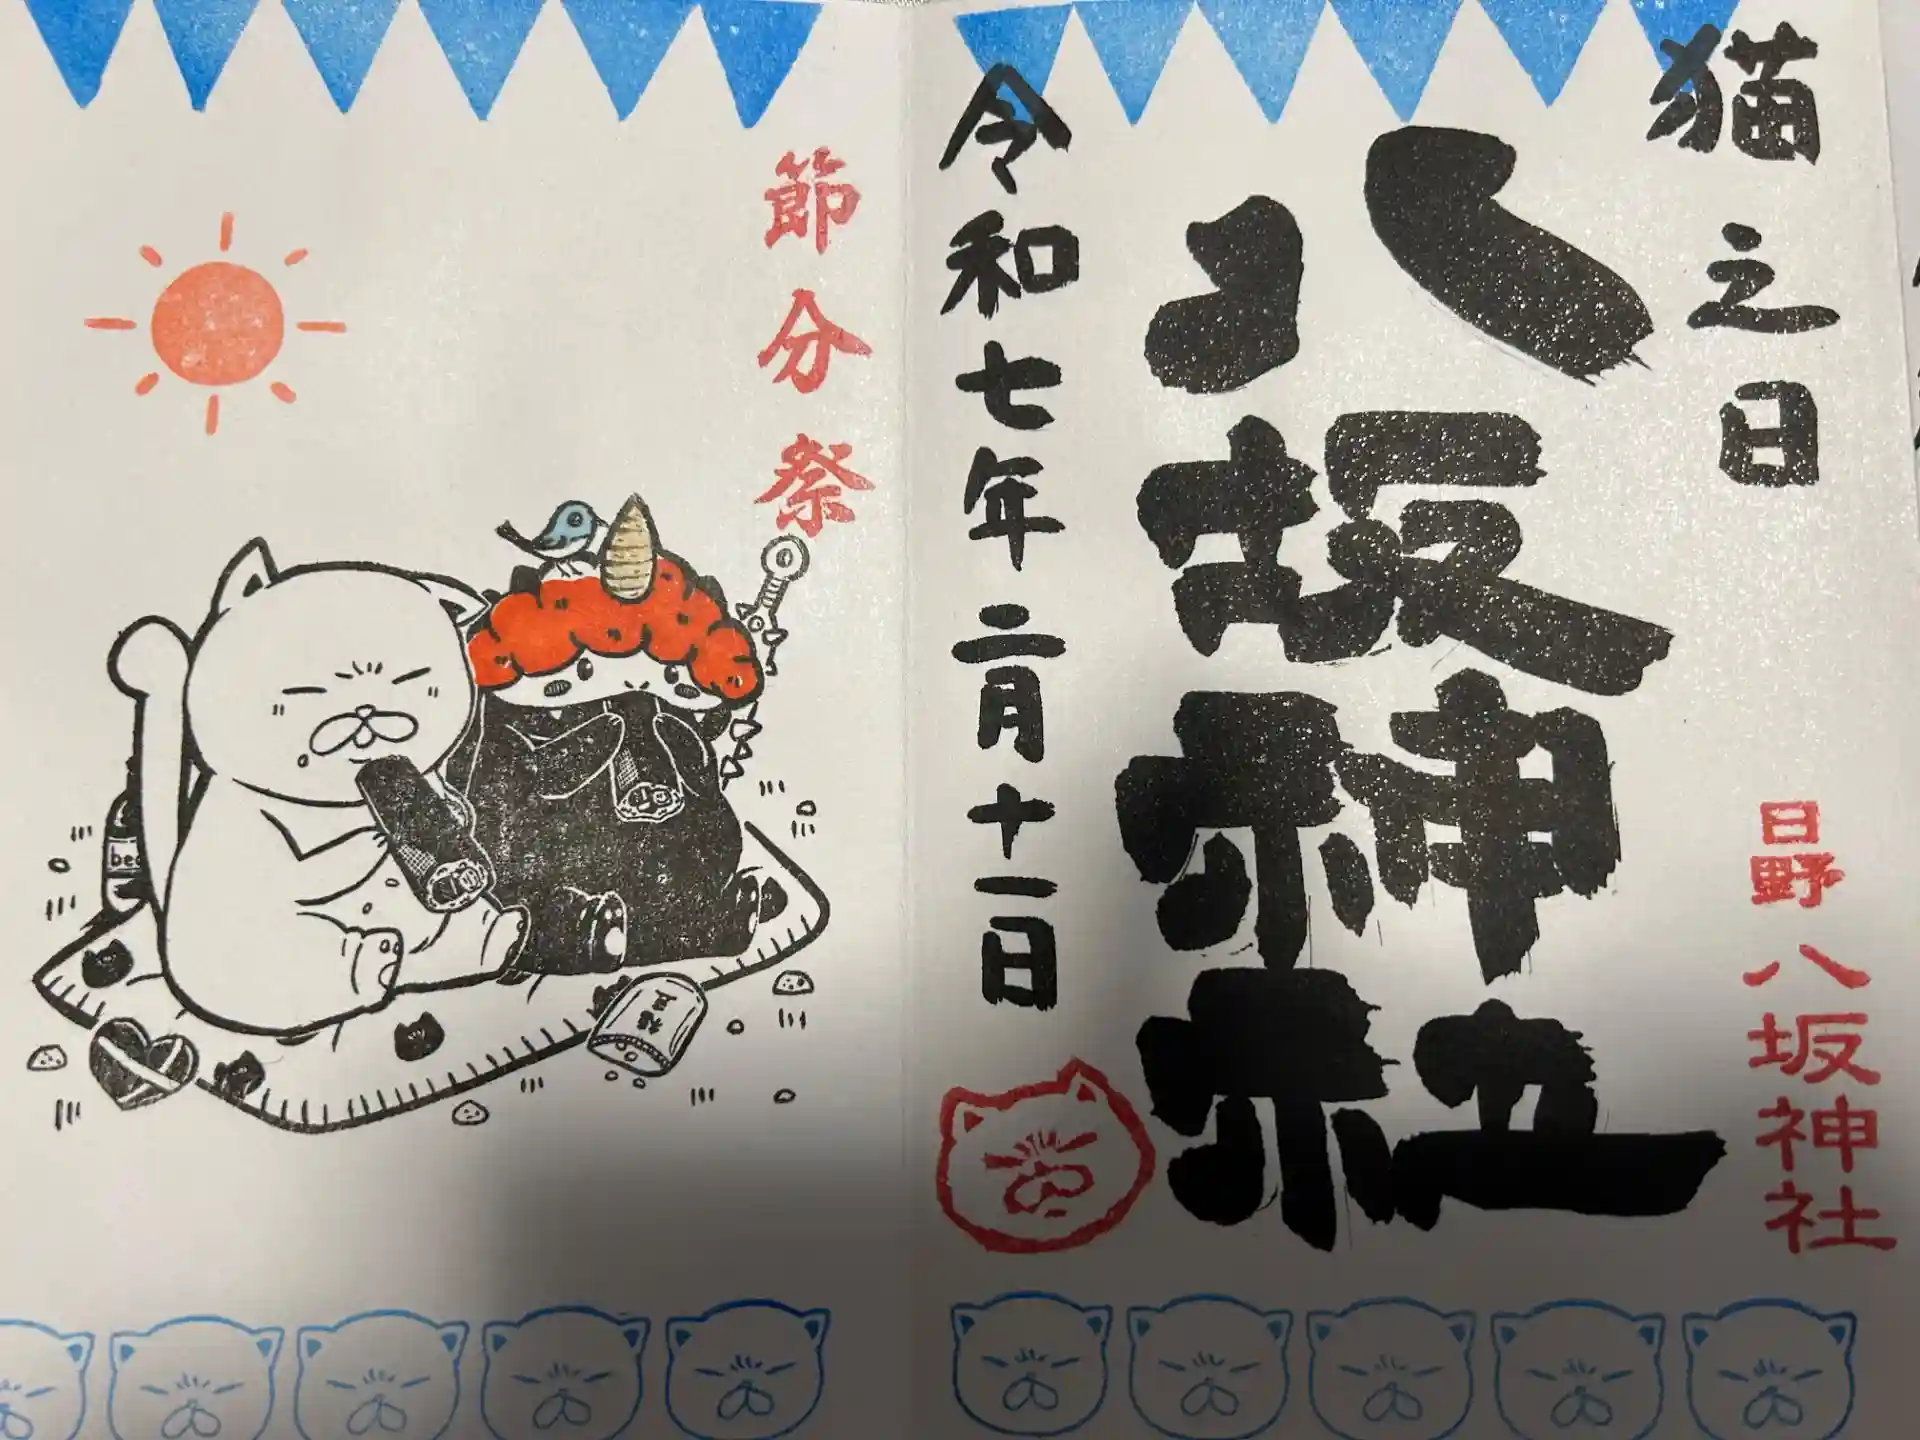 猫之日
八坂神社
日野八坂神社
令和七年二月十一日
節分祭
福豆
bee